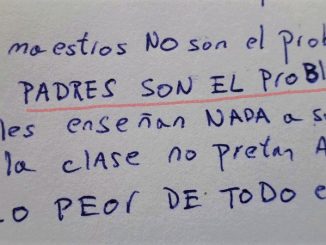 maestros NO son el prob
PADRES SON EL PROBL
les enseñan NADA a s
la clase no pretan A
LO PEOR DE TODO e